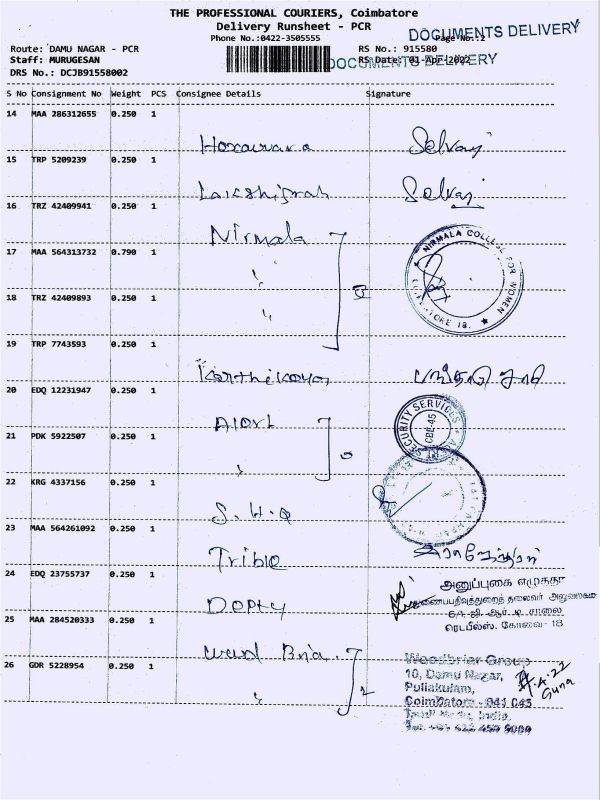 THE PROFESSIONAL COURIERS, Coimbatore
Delivery Runsheet - PCR
DOCUMENTS DELIVERY
Phone No.:0422-3505555 Page No.:2
Route: DAMU NAGAR - PCR RS No.: 915580
Staff: MURUGESAN RS Date: 01-Apr-2022
DOCUMENTS DELIVERY
DRS No.: DCJB91558002
S No Consignment No Weight PCS Consignee Details Signature
14 MAA 286312655 0.250 1
Selvaj
15 TRP 5209239 0.250 1
Selvaj
16 TRZ 42409941 0.250 1
Nirmala
NIRMALA COLLEGE FOR WOMEN
COIMBATORE 18.
17 MAA 564313732 0.790 1
"
18 TRZ 42409893 0.250 1
"
19 TRP 7743593 0.250 1
20 EDQ 12231947 0.250 1
SECURITY SERVICES
CBE-45
21 PDK 5922507 0.250 1
"
22 KRG 4337156 0.250 1
S.H.Q
23 MAA 564261092 0.250 1
24 EDQ 23755737 0.250 1
அனுப்புகை எழுத்தர்
துணைப்பதிவுத்துறைத் தலைவர் அலுவலகம்
ஜி. ஆர். டி. சாலை
ரெட்பீல்ஸ். கோவை- 18
25 MAA 284520333 0.250 1
26 GDR 5228954 0.250 1
" 2
Woodbriar Group
10, Damu Nagar,
Puliakulam,
Coimbatore - 641 045
Tamil Nadu, India.
4.22
Guna